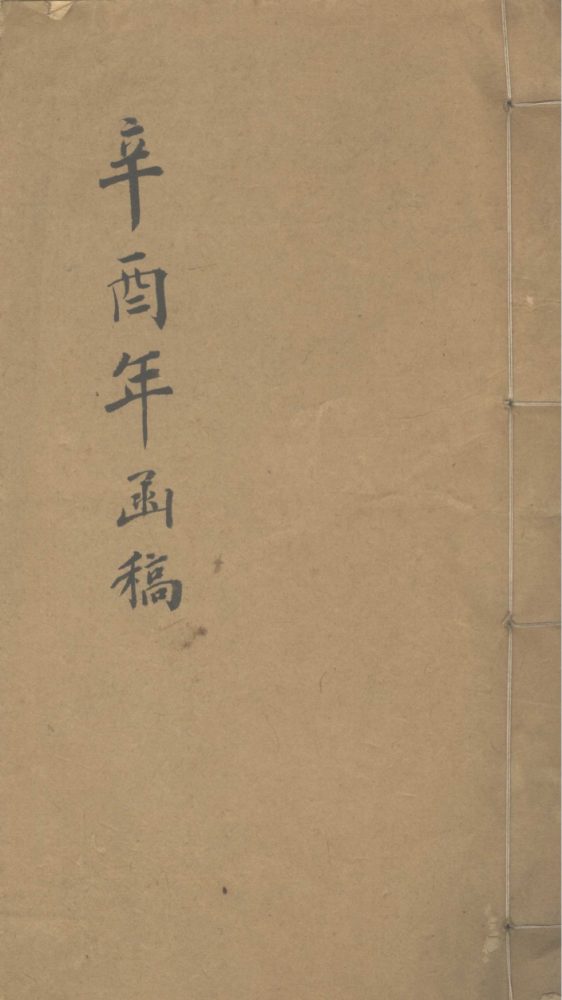 辛酉年函稿